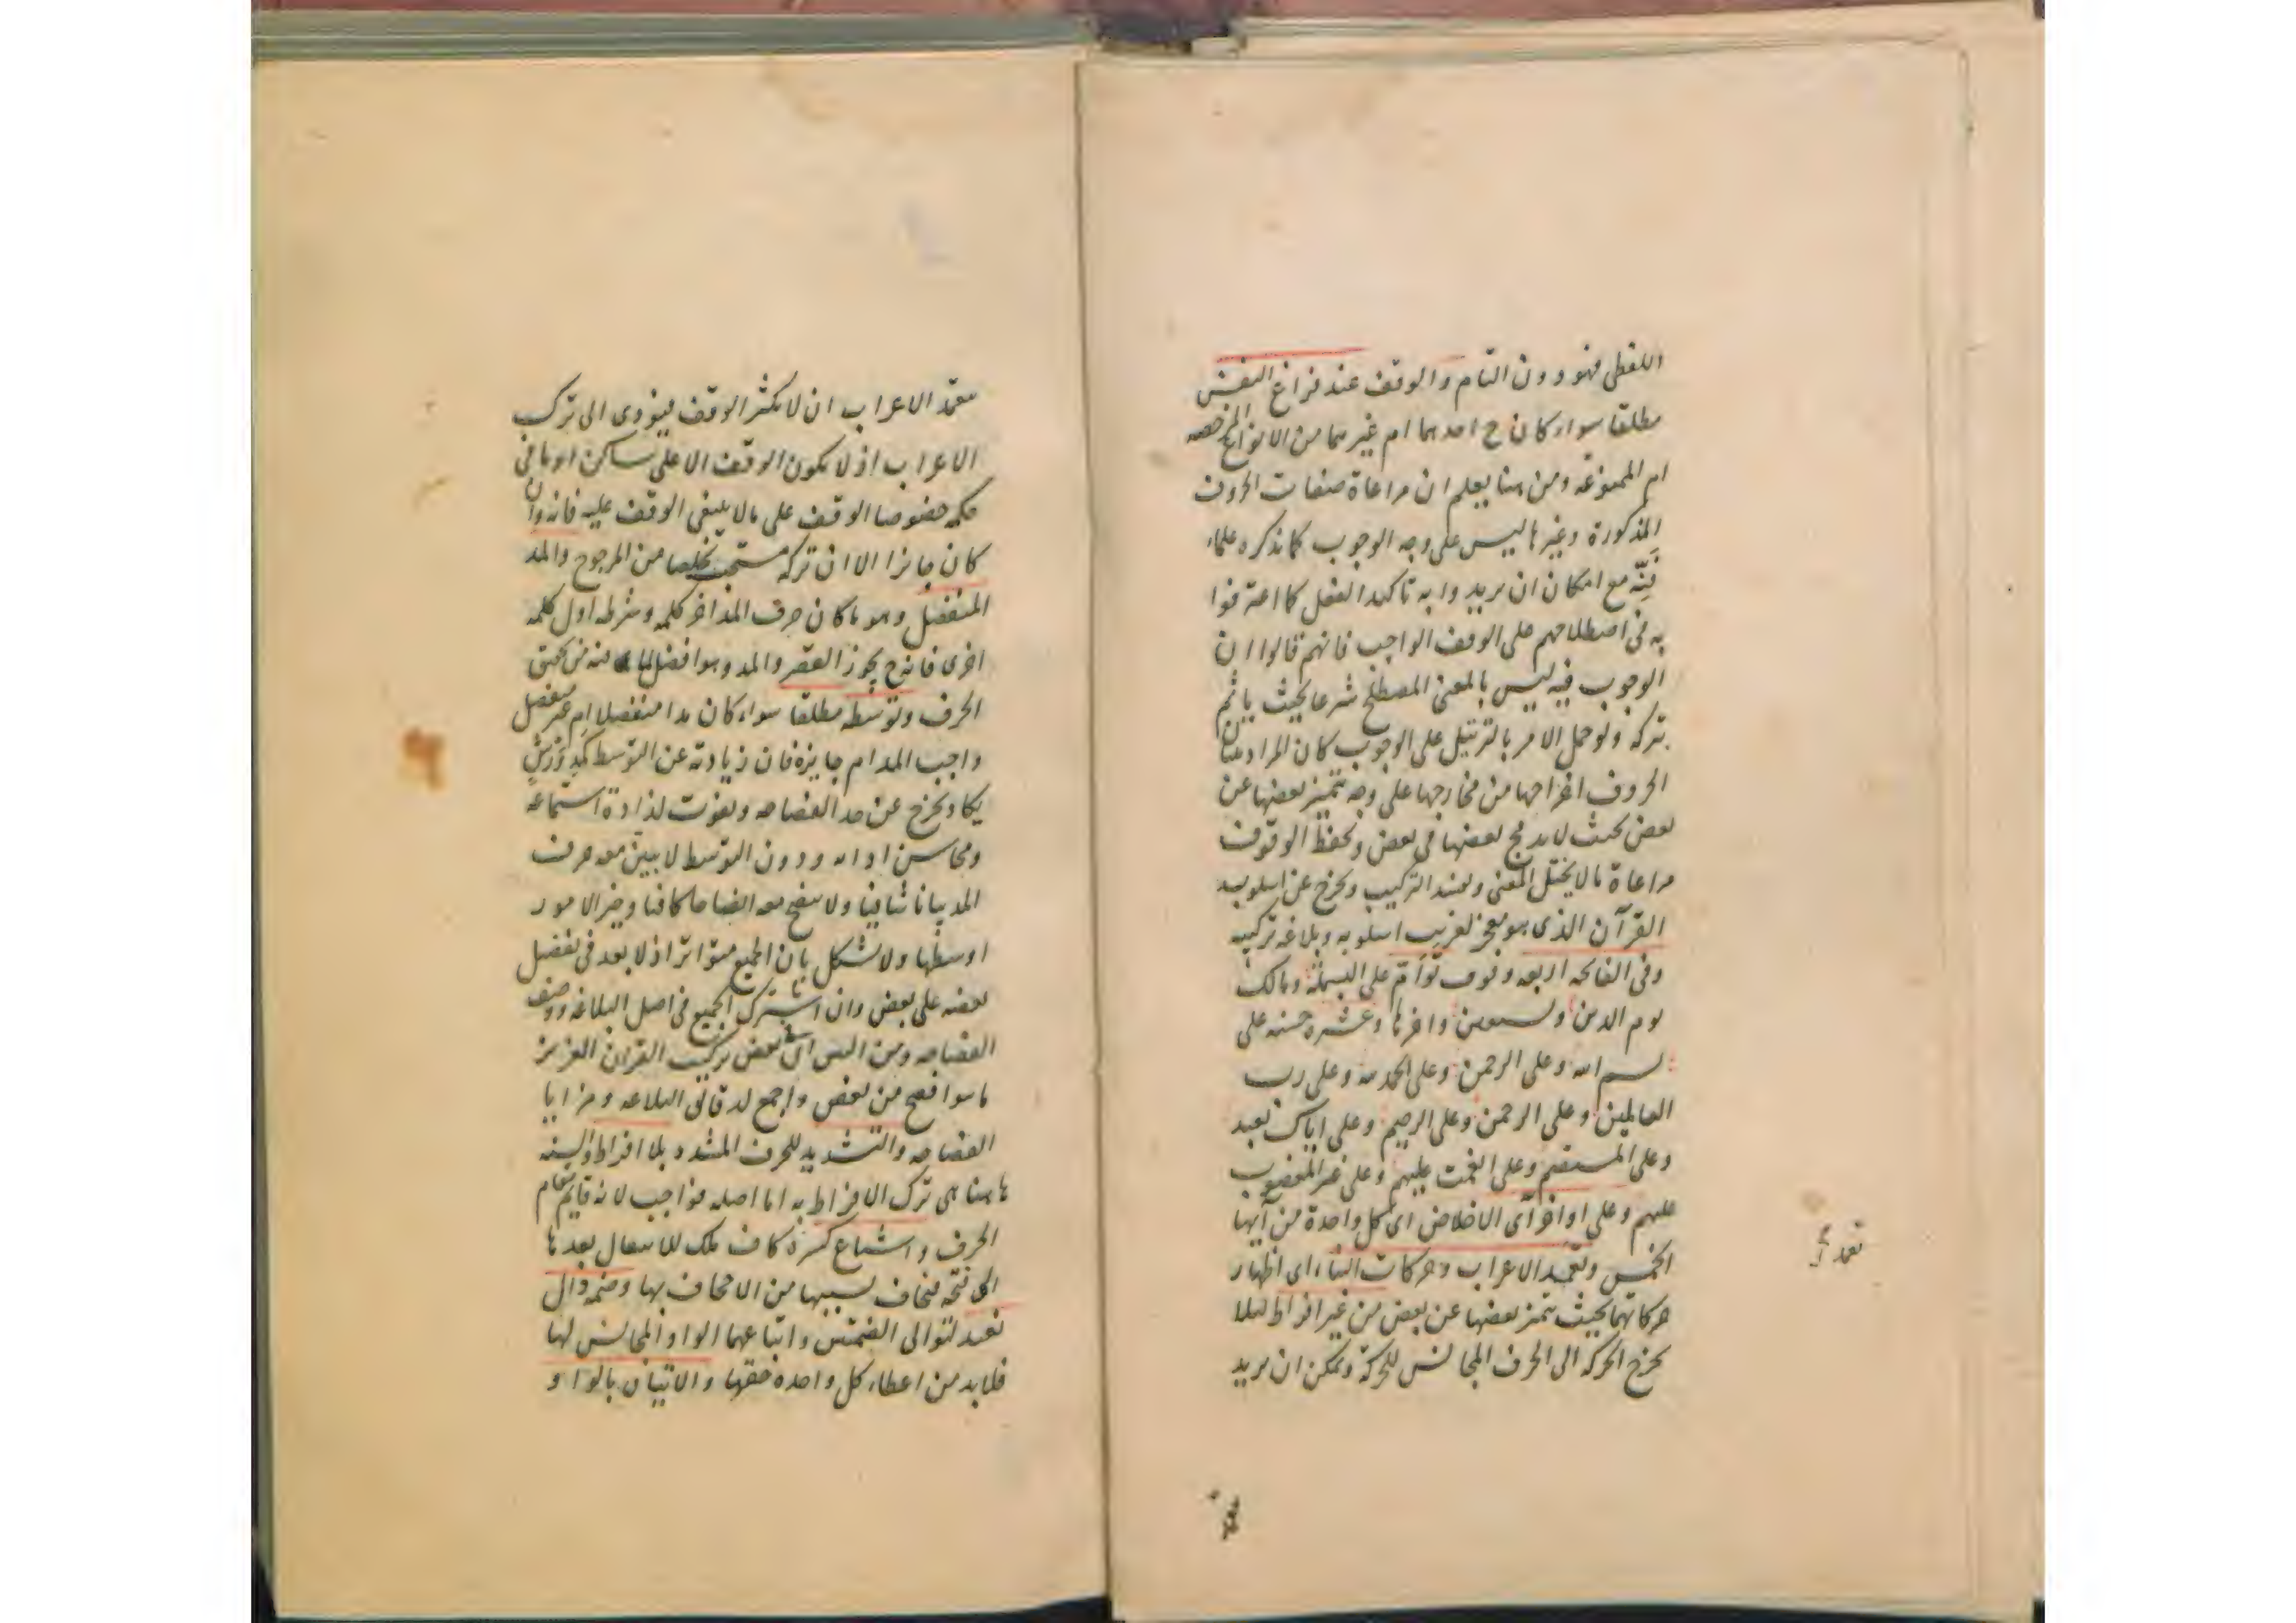 اللفظى فهو دون التام والوقف عند فراغ النفس
مطلقا سواء كان ح احدهما ام غيرهما من الانواع المرخصه
ام الممنوعه ومن هنا يعلم ان مراعاة صفات الحروف
المذكورة وغيرها ليس على وجه الوجوب كما يذكره علماء
فنّه مع امكان ان يريدوا به تاكيد الفعل كما اعترفوا
به فى اصطلاحهم على الوقف الواجب فانهم قالوا ان
الوجوب فيه ليس بالمعنى المصطلح شرعا بحيث ياثم
بتركه ولو حمل الامر بالترتيل على الوجوب كان المراد ببيان
الحروف اخراجها من مخارجها على وجه يتميز بعضها عن
بعض بحيث لا يدمج بعضها فى بعض وبحفظ الوقوف
مراعاة ما لا يختل المعنى ويفسد التركيب ويخرج عن اسلوب
القرآن الذى هو معجز لغريب اسلوبه وبلاغه تركيبه
وفى الفاتحه اربعه وقوف توامّ على البسملة ومالك
يوم الدين ونستعين واخرها وعشره حسنه على
بسم الله وعلى الرحمن وعلى الحمد لله وعلى رب
العالمين وعلى الرحمن وعلى الرحيم وعلى اياك نعبد
وعلى المستقيم وعلى انعمت عليهم وعلى غير المغضوب
عليهم وعلى اواخر آى الاخلاص اى كل واحدة من آيها
الخمس وتعمد الاعراب وحركات البناء اى اظهار
حركاتهما بحيث يتميز بعضها عن بعض من غير افراط لئلا
يخرج الحركه الى الحرف المجانس للحركة ويمكن ان يريد
تعمد
بتعمد الاعراب ان لا يكثر الوقف فيؤدى الى ترك
الاعراب اذ لا يكون الوقف الا على ساكن او ما فى
حكمه خصوصا الوقف على ما لا ينبغى الوقف عليه فانه وان
كان جايزا الا ان تركه مستحب تخلصا من المرجوح والمد
المنفصل وهو ما كان حرف المد اخر كلمه وشرطه اول كلمه
اخرى فانه ح يجوز القصر والمد وهو افضل لما فيه من تحقق
الحرف وتوسطه مطلقا سواء كان مدا منفصلا ام غير منفصل
واجب المد ام جايزه فان زيادته عن التوسط كمد ورش
يكاد يخرج عن حد الفصاحه ويفوت لذاذة استماعه
ومحاسن ادائه ودون التوسط لا يبين معه حرف
المد بيانا شافيا ولا يفصح معه افصاحا كافيا وخير الامور
اوسطها ولا يشكل بان الجميع متواتر اذ لا بعد فى تفضيل
بعضه على بعض وان اشترك الجميع فى اصل البلاغه ووصف
الفصاحه ومن البين ان فى بعض تركيب القران العزيز
ما هو افصح من بعض واجمع لدقائق البلاغه ومزايا
الفصاحه والتشديد للحرف المشدد بلا افراط والسنه
هاهنا هى ترك الافراط به اما اصله فواجب لانه قايم مقام
الحرف واشباع كسرة كاف ملك للانتقال بعدها
الى فتحه فيخاف بسببها من الاجحاف بها وضمه دال
نعبد لتوالى الضمتين واتباعهما الواو المجانس لها
فلا بد من اعطاء كل واحده حقها والاتيان بالواو